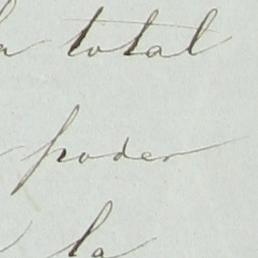 total
poder
la